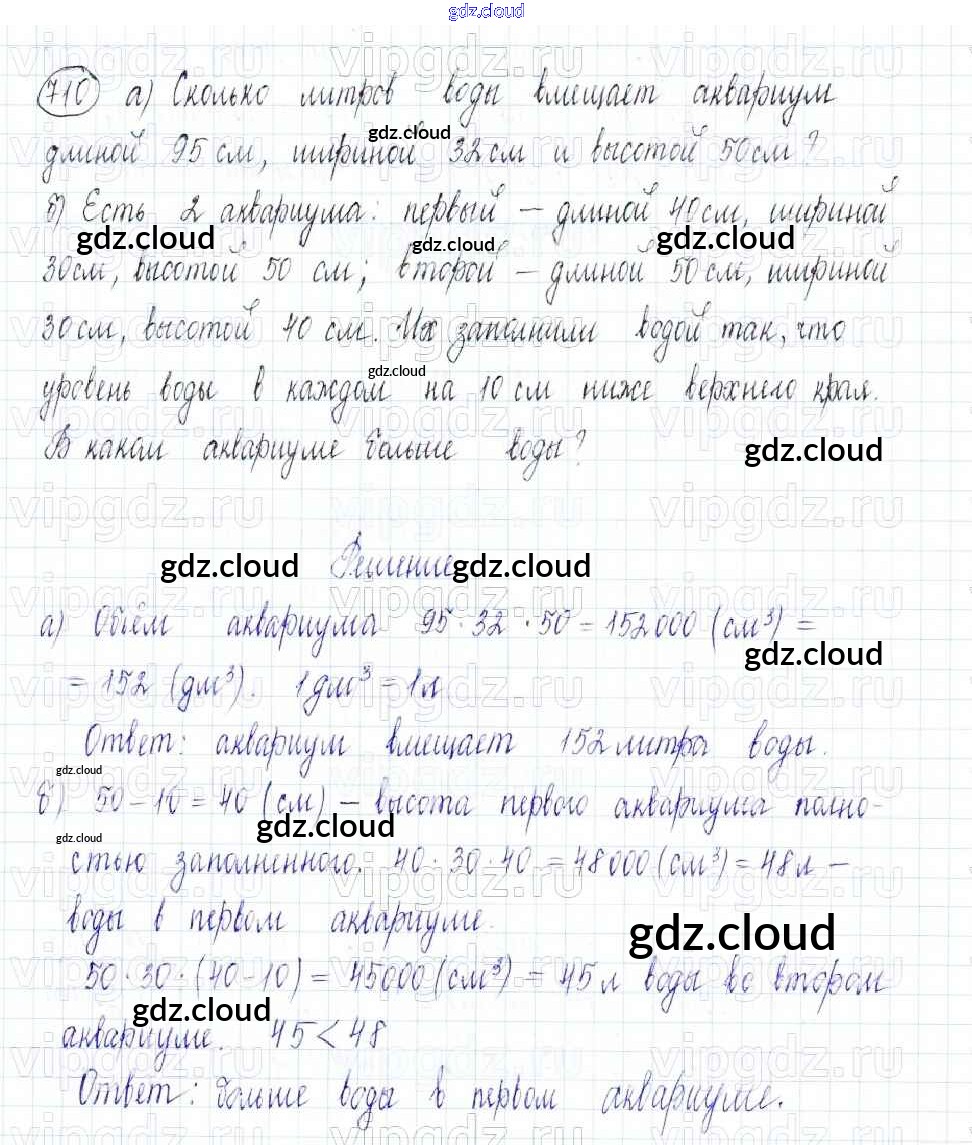 gdz.cloud
710 а) Сколько литров воды вмещает аквариум
gdz.cloud
длиной 95 см, шириной 32 см и высотой 50 см?
б) Есть 2 аквариума: первый – длиной 40 см, шириной
gdz.cloud gdz.cloud
30 см, высотой 50 см; второй – длиной 50 см, шириной
30 см, высотой 40 см. Их заполнили водой так, что
gdz.cloud
уровень воды в каждом на 10 см ниже верхнего края.
В каком аквариуме больше воды?
gdz.cloud
vipgdz.ru vipgdz.ru vipgdz.ru
Решение
gdz.cloud gdz.cloud
а) Объём аквариума 95 · 32 · 50 = 152000 (см³) =
gdz.cloud
= 152 (дм³). 1 дм³ = 1 л
Ответ: аквариум вмещает 152 литра воды.
gdz.cloud
б) 50 – 10 = 40 (см) – высота первого аквариума полно-
gdz.cloud gdz.cloud
стью заполненного. 40 · 30 · 40 = 48000 (см³) = 48 л –
воды в первом аквариуме.
gdz.cloud
50 · 30 · (40 – 10) = 45000 (см³) = 45 л воды во втором
gdz.cloud
аквариуме. 45 < 48
Ответ: больше воды в первом аквариуме.